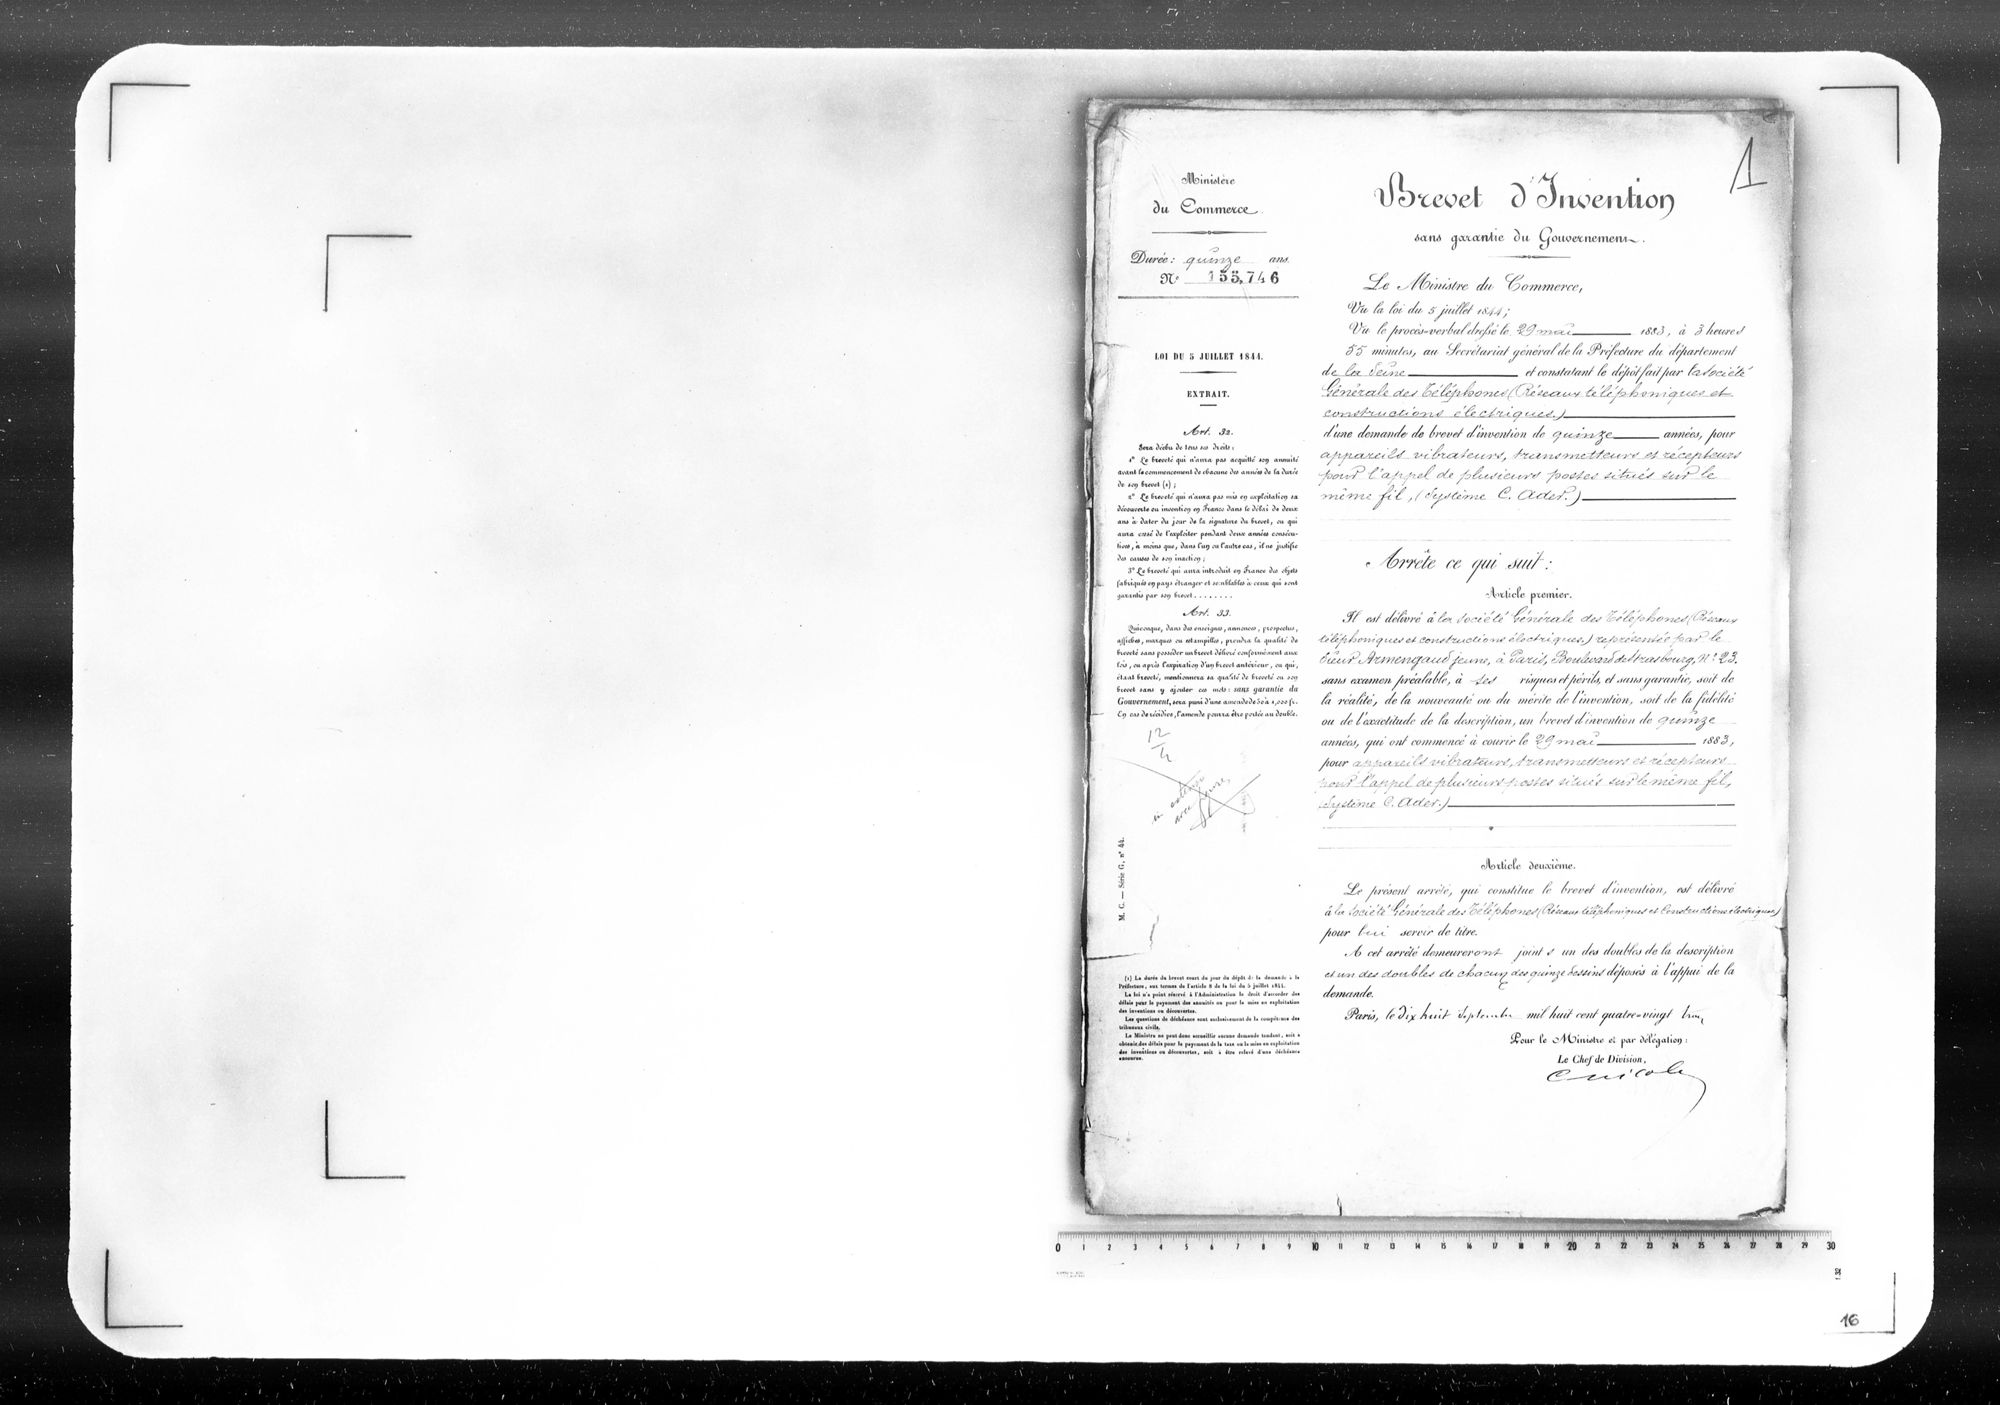 1
Ministère
du Commerce.
Durée: quinze ans
N° 155,746
LOI DU 5 JUILLET 1844.
EXTRAIT.
Art. 32.
Sera déchu de tous ses droits:
1° Le breveté qui n'aura pas acquitté son annuité
avant le commencement de chacune des années de la durée
de son brevet (1);
2° Le breveté qui n'aura pas mis en exploitation sa
découverte ou invention en France dans le délai de deux
ans à dater du jour de la signature du brevet, ou qui
aura cessé de l'exploiter pendant deux années consécu-
tives, à moins que, dans l'un ou l'autre cas, il ne justifie
des causes de son inaction;
3° Le breveté qui aura introduit en France des objets
fabriqués en pays étranger et semblables à ceux qui sont
garantis par son brevet........
Art. 33.
Quiconque, dans des enseignes, annonces, prospectus,
affiches, marques ou estampilles, prendra la qualité de
breveté sans posséder un brevet délivré conformément aux
lois, ou après l'expiration d'un brevet antérieur, ou qui,
étant breveté, mentionnera sa qualité de breveté ou son
brevet sans y ajouter ces mots: sans garantie du
Gouvernement, sera puni d'une amende de 50 à 1,000 fr.
En cas de récidive, l'amende pourra être portée au double.
12
M. C. — Série G, n° 44.
(1) La durée du brevet court du jour du dépôt de la demande à la
Préfecture, aux termes de l'article 8 de la loi du 5 juillet 1844.
La loi n'a point réservé à l'Administration le droit d'accorder des
délais pour le payement des annuités ou pour la mise en exploitation
des inventions ou découvertes.
Les questions de déchéance sont exclusivement de la compétence des
tribunaux civils.
Le Ministre ne peut donc accueillir aucune demande tendant, soit à
obtenir des délais pour le payement de la taxe ou la mise en exploitation
des inventions ou découvertes, soit à être relevé d'une déchéance
encourue.
Brevet d'Invention
sans garantie du Gouvernement.
Le Ministre du Commerce,
Vu la loi du 5 juillet 1844;
Vu le procès-verbal dressé le 29 mai 1883, à 3 heures
55 minutes, au Secrétariat général de la Préfecture du département
de la Seine et constatant le dépôt fait par la Société
Générale des Téléphones (Réseaux téléphoniques et
constructions électriques.)
d'une demande de brevet d'invention de quinze années, pour
appareils vibrateurs, transmetteurs et récepteurs
pour l'appel de plusieurs postes situés sur le
même fil, (Système C. Ader.)
Arrête ce qui suit:
Article premier.
Il est délivré à la Société Générale des Téléphones (Réseaux
téléphoniques et constructions électriques.) représentée par le
Sieur Armengaud jeune, à Paris, Boulevard de Strasbourg, N° 23.
sans examen préalable, à ses risques et périls, et sans garantie, soit de
la réalité, de la nouveauté ou du mérite de l'invention, soit de la fidélité
ou de l'exactitude de la description, un brevet d'invention de quinze
années, qui ont commencé à courir le 29 mai 1883,
pour appareils vibrateurs, transmetteurs et récepteurs
pour l'appel de plusieurs postes situés sur le même fil,
Système C. Ader.)
Article deuxième.
Le présent arrêté, qui constitue le brevet d'invention, est délivré
à la Société Générale des Téléphones (Réseaux téléphoniques et Constructions électriques)
pour lui servir de titre.
A cet arrêté demeureront joints un des doubles de la description
et un des doubles de chacun des quinze dessins déposés à l'appui de la
demande.
Paris, le Dix huit Septembre mil huit cent quatre-vingt trois
Pour le Ministre et par délégation:
Le Chef de Division,
0 1 2 3 4 5 6 7 8 9 10 11 12 13 14 15 16 17 18 19 20 21 22 23 24 25 26 27 28 29 30
16